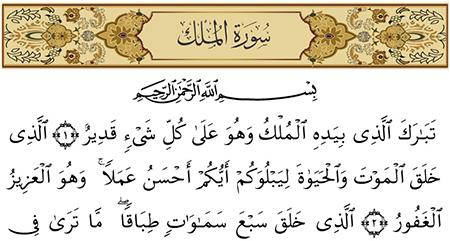 سُورَةُ الْمُلْكِ
بِسْمِ اللَّهِ الرَّحْمَٰنِ الرَّحِيمِ
تَبَٰرَكَ ٱلَّذِى بِيَدِهِ ٱلْمُلْكُ وَهُوَ عَلَىٰ كُلِّ شَىْءٍ قَدِيرٌ ﴿١﴾ ٱلَّذِى
خَلَقَ ٱلْمَوْتَ وَٱلْحَيَوٰةَ لِيَبْلُوَكُمْ أَيُّكُمْ أَحْسَنُ عَمَلًا ۚ وَهُوَ ٱلْعَزِيزُ
ٱلْغَفُورُ ﴿٢﴾ ٱلَّذِى خَلَقَ سَبْعَ سَمَٰوَٰتٍ طِبَاقًا ۖ مَّا تَرَىٰ فِى